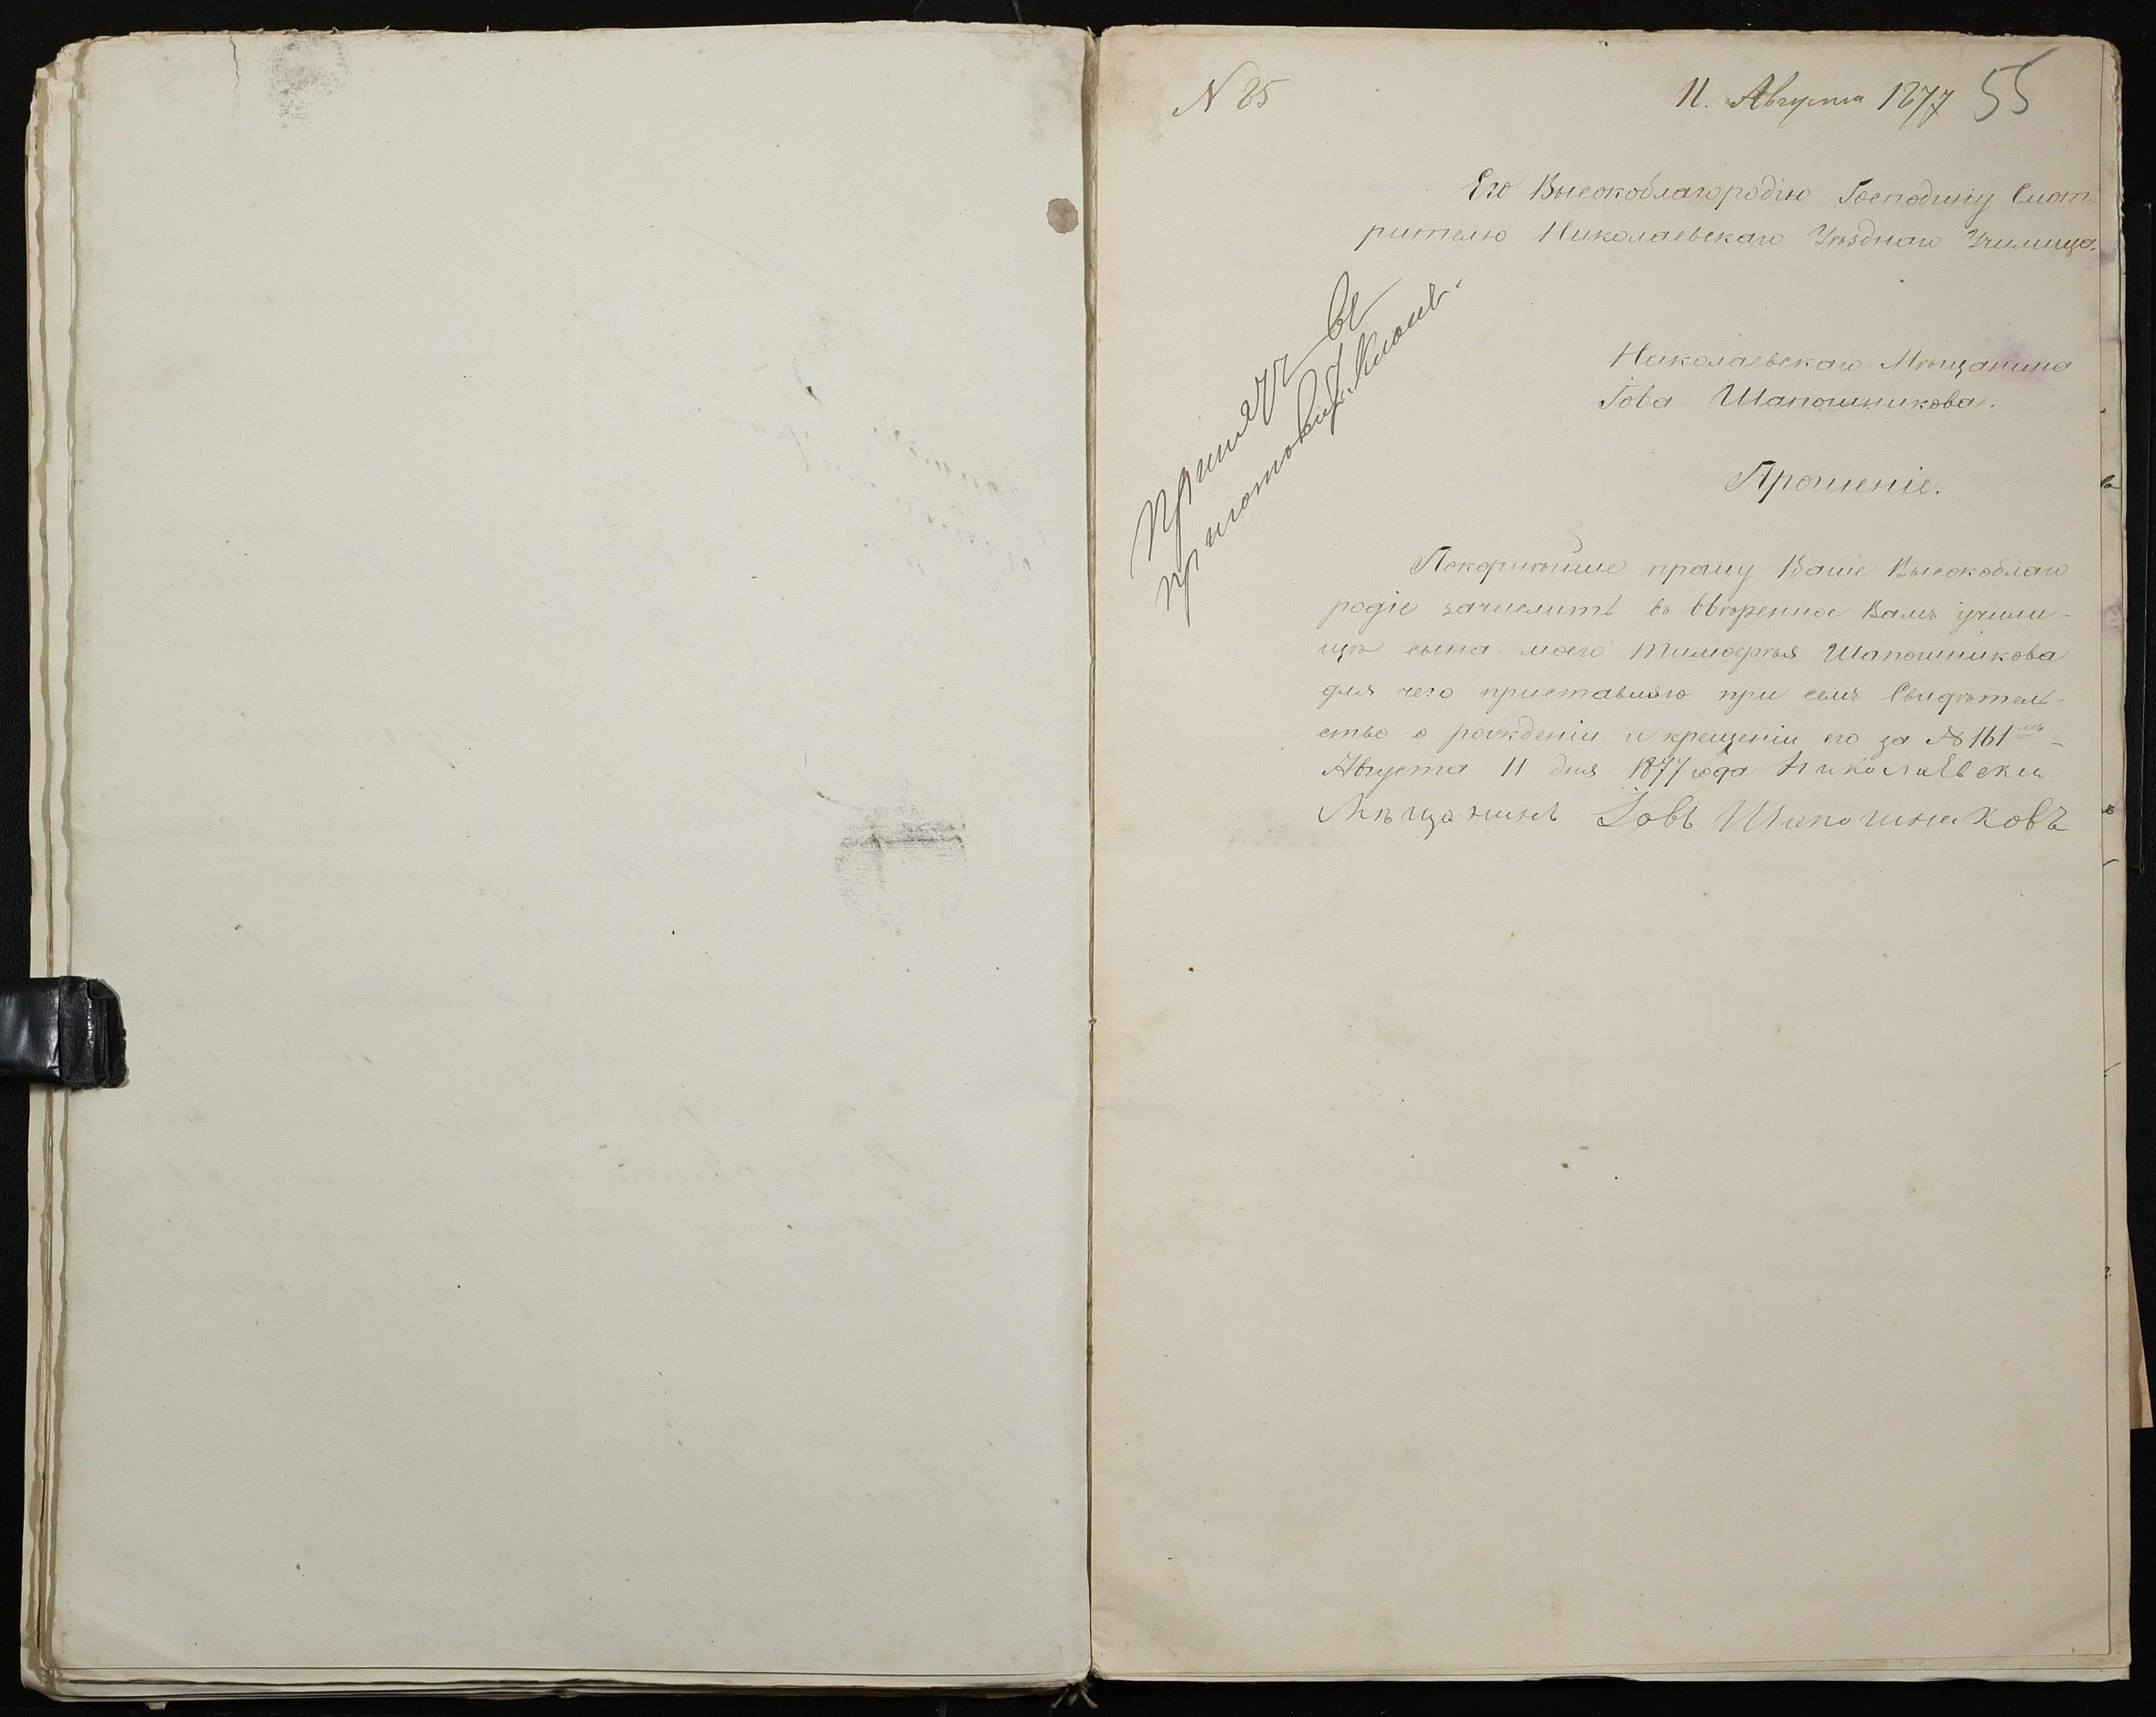 N 85
11. Августа 1877 55
Его Высокоблагородію Господину Смот-
рителю Николаевскаго Уѣзднаго Училища.
Принять въ
приготовит. Классъ.
Николаевскаго Мѣщанина
Іова Шапошникова.
Прошеніе.
Покорнѣйше прошу Ваше Высокоблаго
родіе зачислить во ввѣренное Вамъ учили-
щѣ сына моего Тимофѣя Шапошникова
для чего приставляю при семъ Свидѣтель-
ство о рожденіи и крещеніи его за № 161
Августа 11 дня 1877 года Николаевски
Мѣщанинъ Іовъ Шапошниковъ